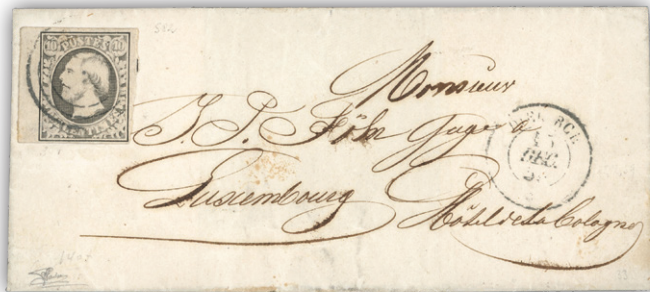 10 POSTES 10
Monsieur
J. P. Föhr Juge à
Luxembourg
Hôtel de la Cologne
DEC.